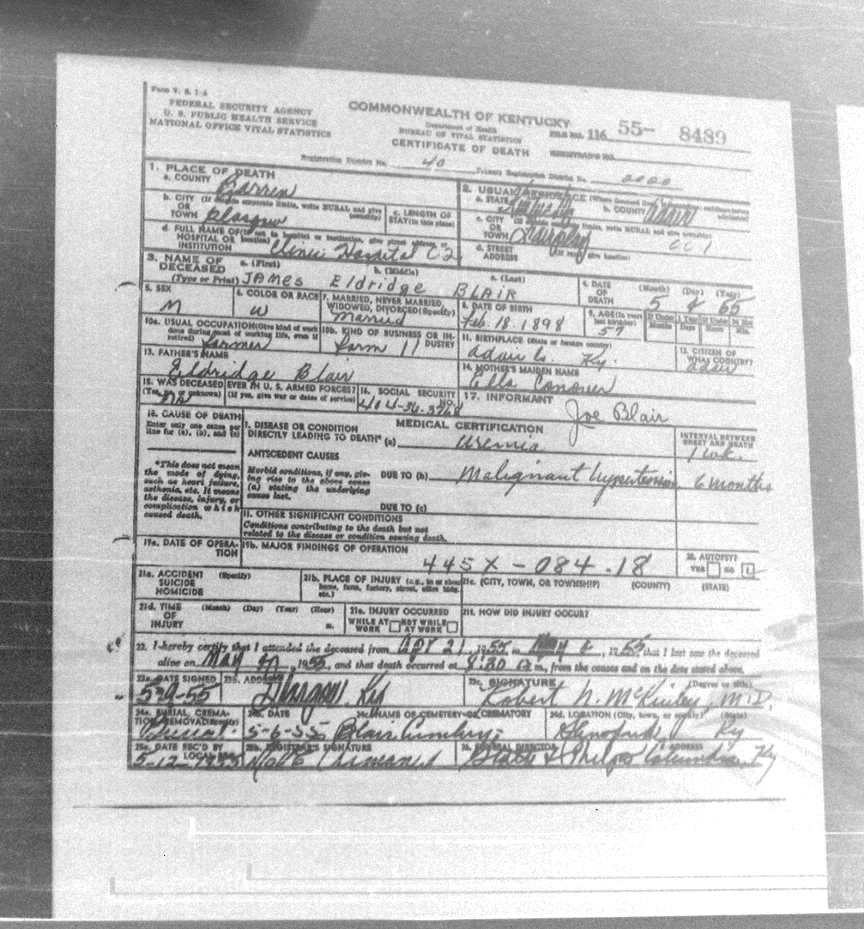 Form V. S. 1-A
FEDERAL SECURITY AGENCY
U. S. PUBLIC HEALTH SERVICE
NATIONAL OFFICE VITAL STATISTICS
COMMONWEALTH OF KENTUCKY
Department of Health
BUREAU OF VITAL STATISTICS
CERTIFICATE OF DEATH
FILE NO. 116 55- 8489
REGISTRAR'S NO.
Registration District No. 40 Primary Registration District No.
1. PLACE OF DEATH
a. COUNTY Barren
b. CITY OR TOWN Glasgow
c. LENGTH OF STAY (in this place)
d. FULL NAME OF HOSPITAL OR INSTITUTION Clinic Hospital
2. USUAL RESIDENCE
a. STATE Kentucky b. COUNTY Adair
c. CITY OR TOWN
d. STREET ADDRESS
3. NAME OF DECEASED (Type or Print)
a. (First) b. (Middle) c. (Last)
JAMES Eldridge BLAIR
4. DATE OF DEATH (Month) (Day) (Year)
5
5. SEX M
6. COLOR OR RACE W
7. MARRIED, NEVER MARRIED, WIDOWED, DIVORCED (Specify) Married
8. DATE OF BIRTH Feb. 18. 1898
9. AGE (In years last birthday) 57
10a. USUAL OCCUPATION (Give kind of work done during most of working life, even if retired) Farmer
10b. KIND OF BUSINESS OR INDUSTRY Farm
11. BIRTHPLACE (State or foreign country) Adair Co. Ky.
12. CITIZEN OF WHAT COUNTRY?
13. FATHER'S NAME Eldridge Blair
14. MOTHER'S MAIDEN NAME Ella Conover
15. WAS DECEASED EVER IN U. S. ARMED FORCES? (Yes, no or unknown) (If yes, give war or dates of service) No
16. SOCIAL SECURITY NO.
17. INFORMANT Joe Blair
18. CAUSE OF DEATH
Enter only one cause per line for (a), (b), and (c)
MEDICAL CERTIFICATION
INTERVAL BETWEEN ONSET AND DEATH
I. DISEASE OR CONDITION DIRECTLY LEADING TO DEATH* (a) Uremia 1 wk.
*This does not mean the mode of dying, such as heart failure, asthenia, etc. It means the disease, injury, or complication which caused death.
ANTECEDENT CAUSES
Morbid conditions, if any, giving rise to the above cause (a) stating the underlying cause last.
DUE TO (b) Malignant hypertension 6 months
DUE TO (c)
II. OTHER SIGNIFICANT CONDITIONS
Conditions contributing to the death but not related to the disease or condition causing death.
19a. DATE OF OPERATION
19b. MAJOR FINDINGS OF OPERATION
445X-084.18
20. AUTOPSY?
YES NO
21a. ACCIDENT SUICIDE HOMICIDE (Specify)
21b. PLACE OF INJURY (e.g., in or about home, farm, factory, street, office bldg. etc.)
21c. (CITY, TOWN, OR TOWNSHIP) (COUNTY) (STATE)
21d. TIME OF INJURY (Month) (Day) (Year) (Hour) m.
21e. INJURY OCCURRED
WHILE AT WORK NOT WHILE AT WORK
21f. HOW DID INJURY OCCUR?
22. I hereby certify that I attended the deceased from Apr 21, 1955 to May, 1955, that I last saw the deceased
alive on May, 1955, and that death occurred at 8:30 m., from the causes and on the date stated above.
23a. DATE SIGNED 5-9-55
23b. ADDRESS Glasgow Ky
23c. SIGNATURE (Degree or title) Robert N. McKinley, M.D.
24a. BURIAL, CREMATION, REMOVAL (Specify) Burial
24b. DATE 5-6-55
24c. NAME OF CEMETERY OR CREMATORY Blair Cemetery
24d. LOCATION (City, town, or county) (State) Ky
25a. DATE REC'D BY LOCAL REG. 5-12-1955
25b. REGISTRAR'S SIGNATURE
26. FUNERAL DIRECTOR ADDRESS Phelps Columbia, Ky